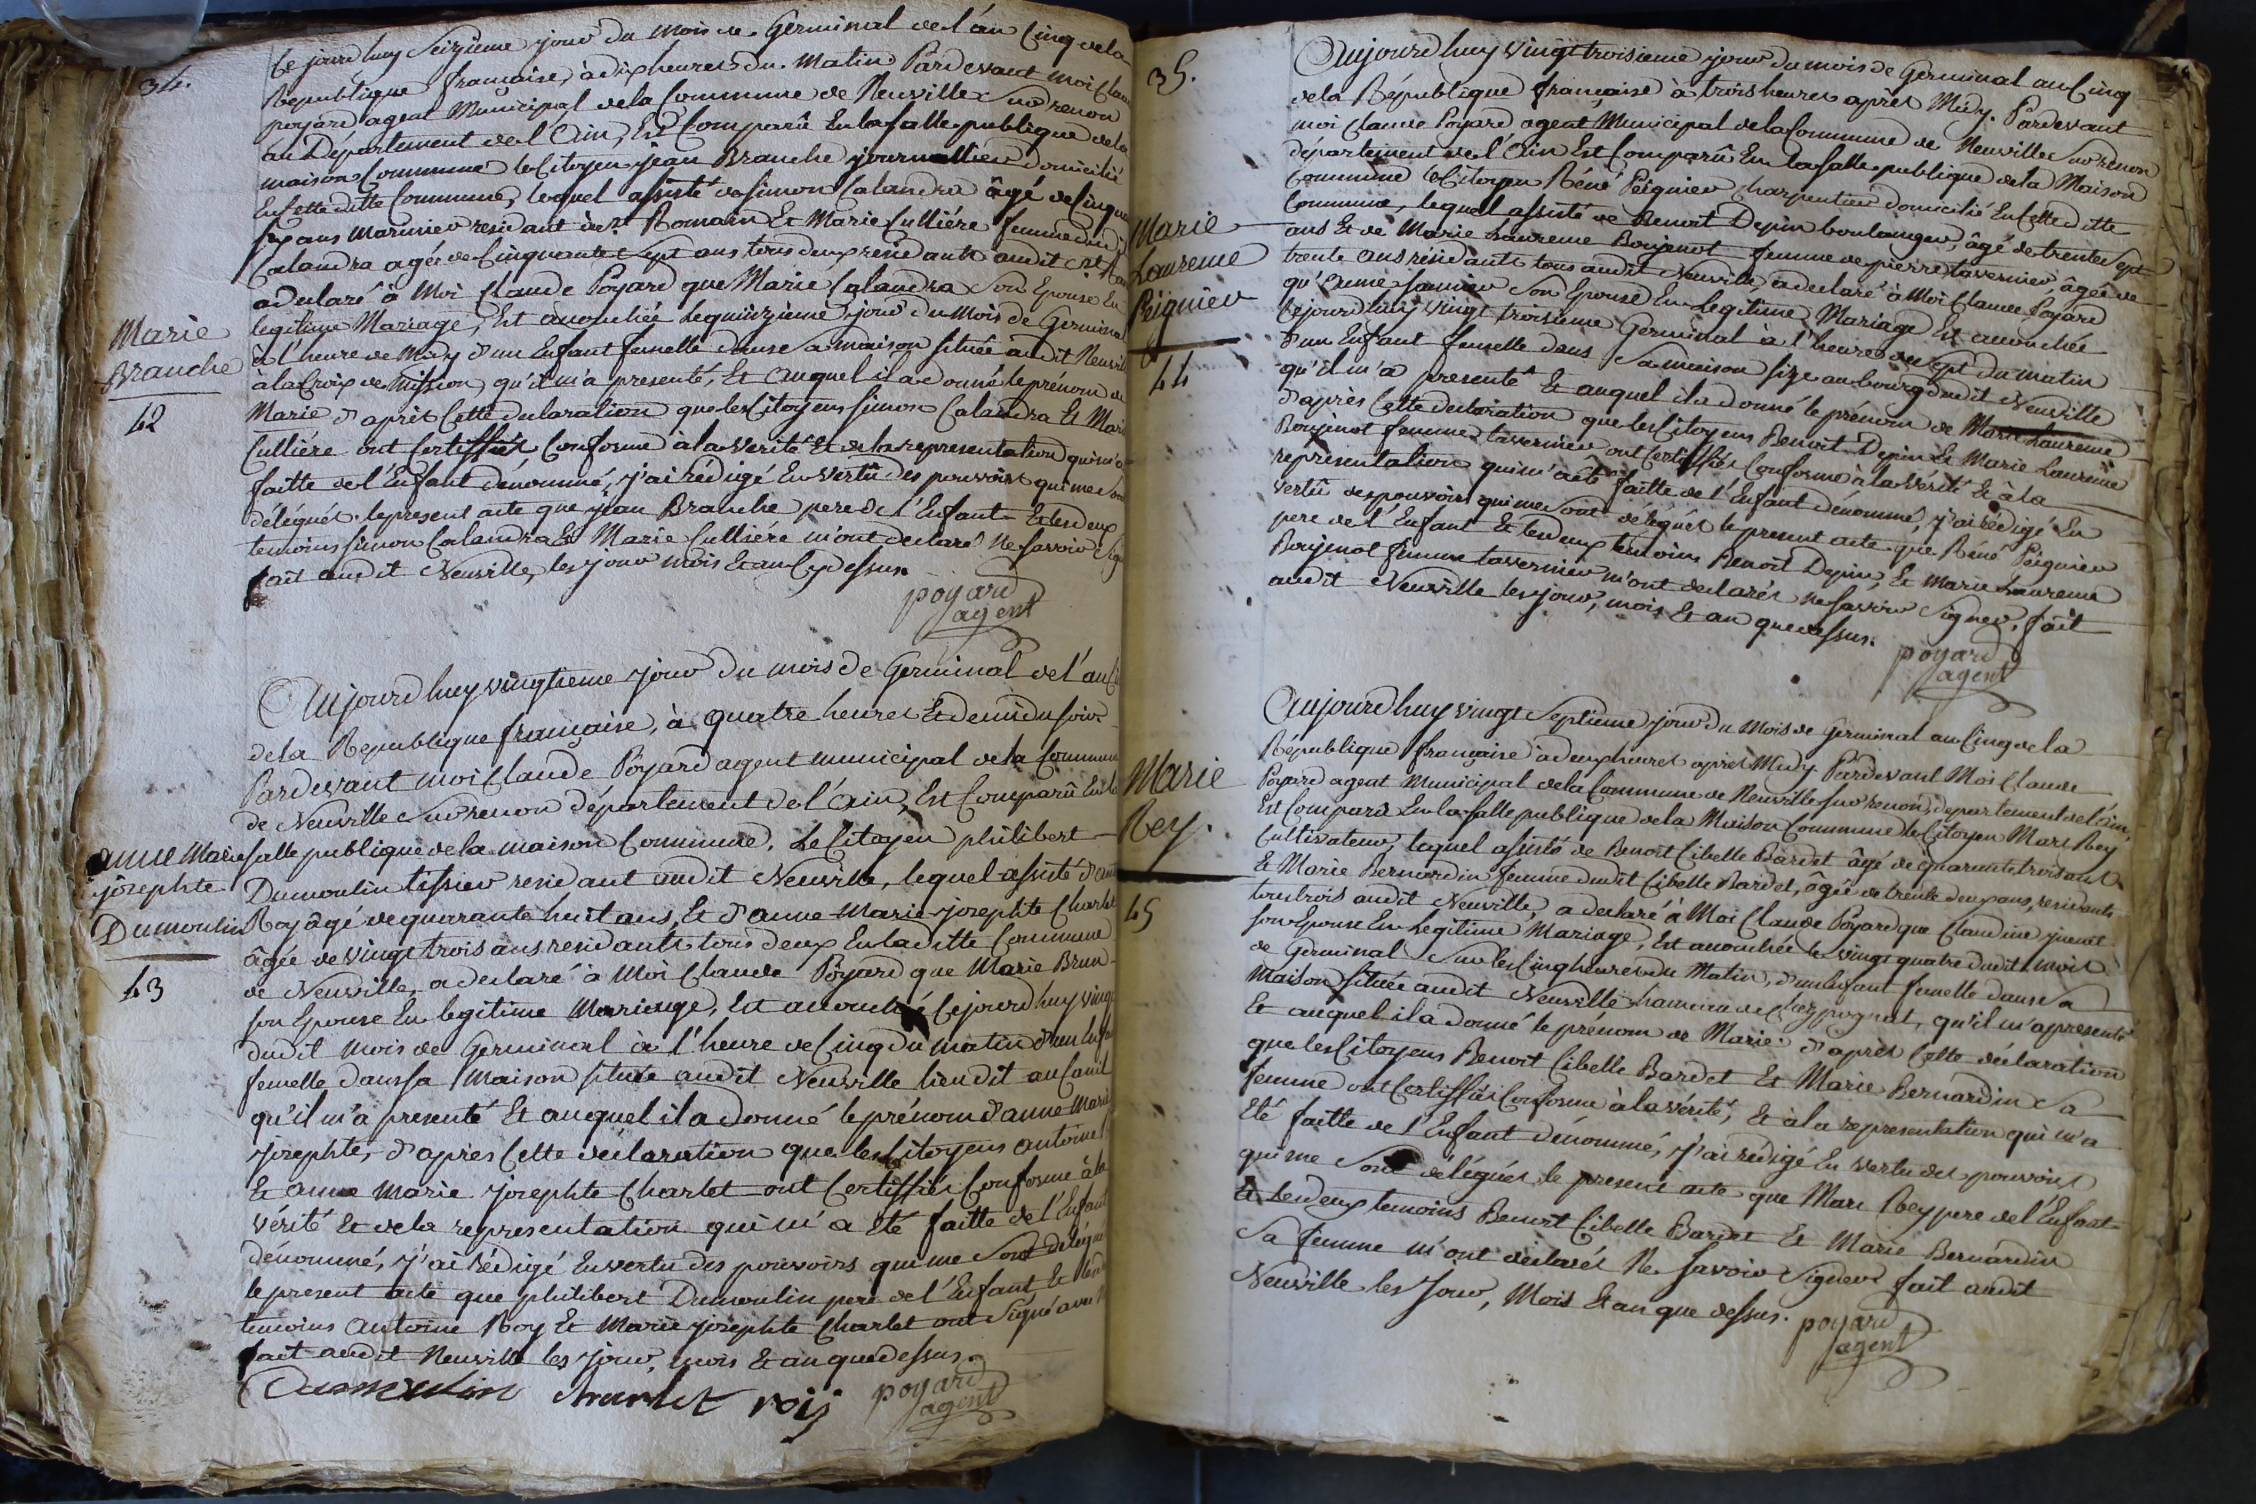 34.
Ce jourd'huy Seizième jour du mois de Germinal de l'an Cinq de la
République française, à dix heures du Matin Pardevant moi Claude
poyard agent Municipal de la Commune de Neuville Sur renon
au Département de l'Ain, Est Comparû En la salle publique de la
maison Commune le Citoyen jean Branche journallier domicilié
En Cette ditte Commune, lequel assisté de Simon Calandra âgé de Cinquante
ans Marinier residant à St Romain Et Marie Cullière femme dudit
Calandra agée de Cinquante Sept ans tous deux residants audit St
a déclaré à Moi Claude Poyard que Marie Calandra Son Epouse En
legitime Mariage, Est accouchée le quinzième jour du Mois de Germinal
à l'heure de Midy d'un Enfant femelle dans Sa maison située audit Neuville
à la Croix de Mission, qu'il m'a presenté, Et auquel il a donné le prénom de
Marie, d'après Cette déclaration que les Citoyens Simon Calandra Et Marie
Cullière ont Certiffiés Conforme à la vérité Et de la representation qui m'a
faitte de l'Enfant dénommé, j'ai rédigé En vertû des pouvoirs qui me Sont
délégués le present acte que jean Branche pere de l'Enfant Et les deux
temoins simon Calandra Et Marie Cullière m'ont declaré Ne Savoir Signer
fait audit Neuville, les jour mois Et an Cy dessus.
poyard
agent
Marie
Branche
42
Aujourd'huy vingtieme jour du mois de Germinal de l'an
de la Republique française, à quatre heures Et demi du soir
Pardevant moi Claude Poyard agent municipal de la Commune
de Neuville Sur renon département de l'Ain, Est Comparû En la
salle publique de la maison Commune, Le Citoyen philibert
Dumoulin tissier residant audit Neuville, lequel assisté d'antoine
Roy âgé de quarante huit ans, Et d'anne Marie josephte Charlet
âgée de vingt trois ans residants tous deux En la ditte Commune
de Neuville, a declaré à Moi Claude Poyard que Marie Brun
son Epouse En legitime Mariage, Est accouchée Cejourd'huy vingt
dudit mois de Germinal à l'heure de Cinq du matin d'un Enfant
femelle dans sa Maison située audit Neuville lieu dit au
qu'il m'a presenté Et auquel il a donné le prénom d'anne Marie
josephte, d'après Cette déclaration que les Citoyens antoine
Et anne Marie josephte Charlet ont Certiffiés Conforme à la
vérité Et de la representation qui m'a Eté faitte de l'Enfant
dénommé, j'ai rédigé En vertu des pouvoirs qui me Sont délégués
le present acte que philibert Dumoulin pere de l'Enfant Et les deux
temoins antoine Roy Et Marie josephte Charlet ont Signé avec
fait audit Neuville les jour, mois Et an que dessus.
Dumoulin charlet roij poyard
agent
anne Marie
josephte
Dumoulin
43
35.
Aujourd'huy vingt troisieme jour du mois de Germinal an Cinq
de la République française à trois heures après Midy. Pardevant
moi Claude Poyard agent Municipal de la Commune de Neuville Sur renon
département de l'Ain Est Comparû En la salle publique de la Maison
Commune le Citoyen Réné Peignier charpentier domicilié En Cette ditte
Commune, lequel assisté de Benoit Depin boulanger, âgé de trente Sept
ans Et de Marie Laurence Boujenot femme de pierre tavernier âgée de
trente ans résidants tous audit Neuville, a declaré à Moi Claude Poyard
qu'anne Son Epouse En Legitime Mariage Est accouchée
Cejourd'huy vingt troisieme Germinal à l'heure de Sept du matin
d'un Enfant femelle dans Sa maison size au bourg dudit Neuville
qu'il m'a presenté Et auquel il a donné le prénom de Marie Laurence
d'après Cette declaration que les Citoyens Benoit Depin Et Marie Laurence
Boujenot femme tavernier ont Certiffiés Conforme à la vérité Et à la
representation qui m'a été faitte de l'Enfant dénommé, j'ai rédigé En
vertû des pouvoirs qui me Sont délégués le present acte que Réné Peignier
pere de l'Enfant Et les deux temoins Benoit Depin, Et Marie Laurence
Boujenot femme tavernier m'ont declarés ne Savoir Signer, fait
audit Neuville les jour, mois Et an que dessus.
poyard
agent
Marie
Laurence
Peignier
44
Aujourd'huy vingt Septieme jour du Mois de Germinal an Cinq de la
République française à deux heures après Midy Pardevant Moi Claude
Poyard agent Municipal de la Commune de Neuville Sur renon, departement de l'ain,
Est Comparû En la salle publique de la Maison Commune le Citoyen Marc Rey
Cultivateur, lequel assisté de Benoit Cibelle Bardet âgé de quarante trois ans
Et Marie Bernardin femme dudit Cibelle Bardet, âgée de trente deux ans, residants
tous trois audit Neuville, a declaré à Moi Claude Poyard que Claudine juenet
son Epouse En Legitime Mariage, Est accouchée le vingt quatre dudit mois
de Germinal Sur les Cinq heures du Matin, d'un Enfant femelle dans Sa
Maison située audit Neuville hameau de Chez pognat, qu'il m'a presenté
Et auquel il a donné le prénom de Marie. d'après Cette déclaration
que les Citoyens Benoit Cibelle Bardet Et Marie Bernardin Sa
femme ont Certiffiés Conforme à la vérité, Et à la representation qui m'a
Eté faitte de l'Enfant dénommé, j'ai rédigé En vertu des pouvoirs
qui me Sont délégués le present acte que Marc Rey pere de l'Enfant
Et Les deux temoins Benoit Cibelle Bardet Et Marie Bernardin
Sa femme m'ont déclarés Ne Savoir Signer fait audit
Neuville les Jour, Mois Et an que dessus.
poyard
agent
Marie
Rey.
45